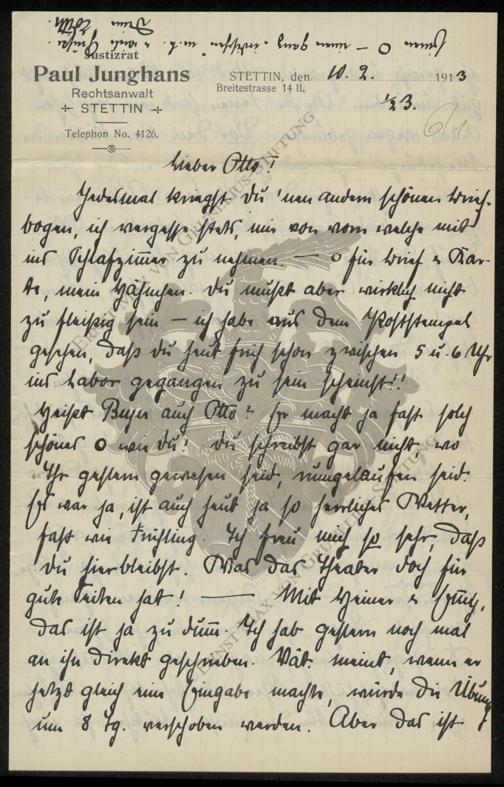 einen O – einen ganz
Deine
Edith.
Justizrat
Paul Junghans
Rechtsanwalt
STETTIN
Telephon No. 4126.
STETTIN, den 10. 2. 1913
Breitestrasse 14 II.
1/2 3.
Lieber Otto!
Jedesmal kriegst Du 'nen andern schönen Brief-
bogen, ich vergesse stets, mir von vorn welche mit
ins Schlafzimmer zu nehmen. — o für Brief & Kar-
te, mein Hähnchen. Du mußt aber wirklich nicht
zu fleißig sein — ich habe aus dem Poststempel
gesehen, daß Du heut früh schon zwischen 5 u. 6 Uhr
ins Labor gegangen zu sein scheinst!!
Heißt Beyer auch Otto? Er macht ja fast solch
schönes O wie Du! Du schreibst gar nicht, wo
Ihr gestern gewesen seid, rumgelaufen seid.
Es war ja, ist auch heut ja so herrliches Wetter,
fast wie Frühling. Ich freu mich so sehr, daß
Du hierbleibst. Was das Theater doch für
gute Seiten hat! — Mit Heiner &
das ist ja zu dumm. Ich hab gestern noch mal
an ihn direkt geschrieben. Vat. meint, wenn er
jetzt gleich eine Eingabe machte, würde die Übung
um 8 Tg. verschoben werden. Aber das ist
ERNST MAX VON GRUNELIUS-STIFTUNG